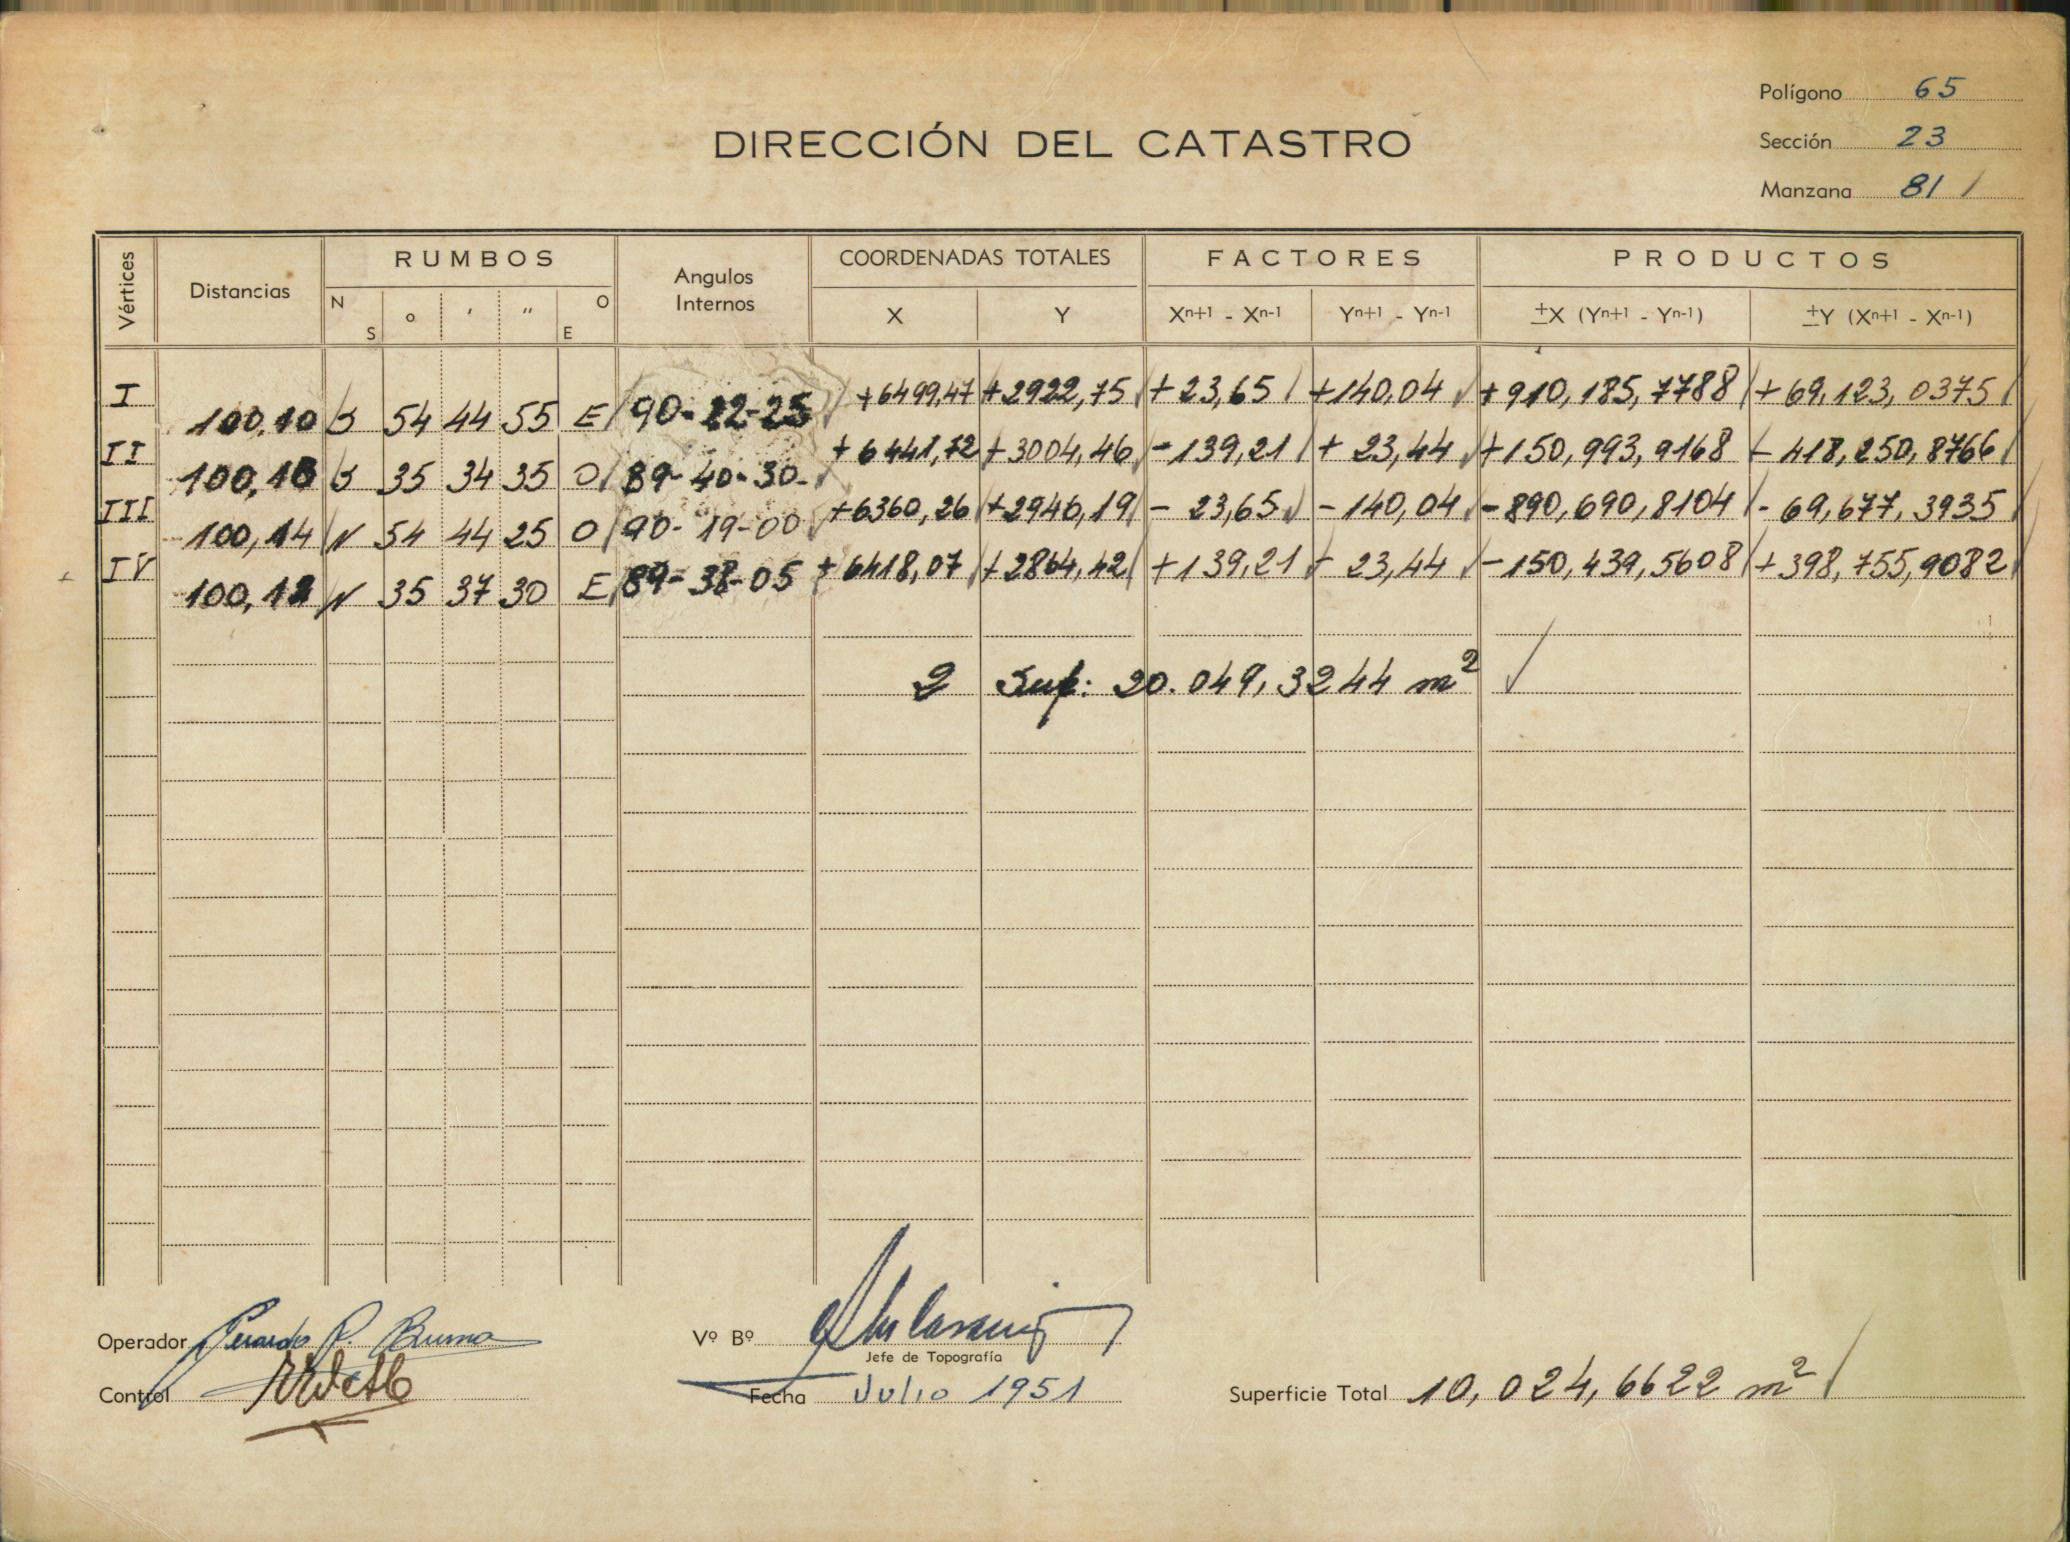 Polígono 65
DIRECCIÓN DEL CATASTRO
Sección 23
Manzana 81 /
Vértices Distancias RUMBOS N S o ' " O E Angulos Internos COORDENADAS TOTALES X Y FACTORES Xn+1 - Xn-1 Yn+1 - Yn-1 PRODUCTOS ±X (Yn+1 - Yn-1) ±Y (Xn+1 - Xn-1)
I +6499,47 +2922,75 +23,65 +140,04 +910,185,7788 +69,123,0375
100,10 S 54 44 55 E 90-22-25
II +6441,72 +3004,46 -139,21 + 23,44 +150,993,9168 - 418,250,8766
100,16 S 35 34 35 O 89-40-30-
III +6360,26 +2946,19 - 23,65 -140,04 -890,690,8104 - 69,677,3935
100,14 N 54 44 25 O 90-19-00
IV +6418,07 +2864,42 +139,21 - 23,44 -150,439,5608 +398,755,9082
100,12 N 35 37 30 E 89-38-05
2 Sup: 20.049,3244 m²
Operador Gerardo R.
Vº Bº
Jefe de Topografía
Control
Fecha Julio 1951
Superficie Total 10,024,6622 m²